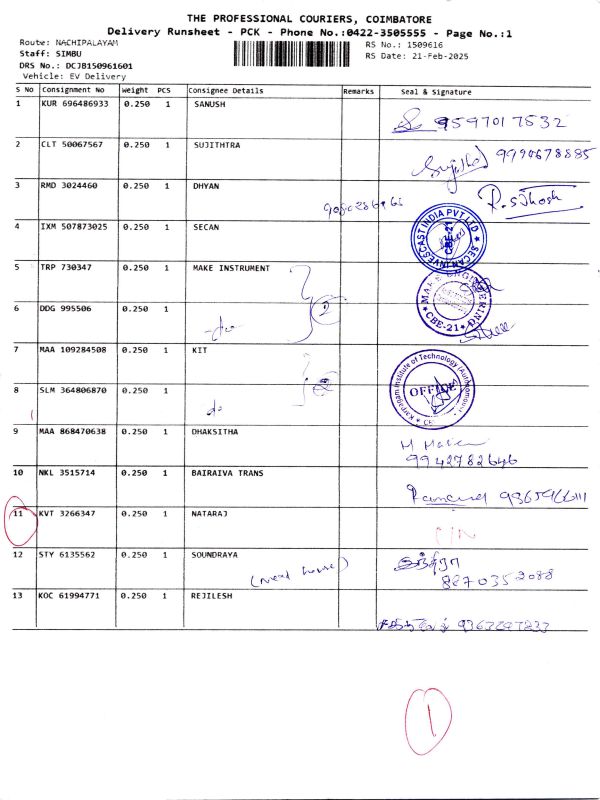 THE PROFESSIONAL COURIERS, COIMBATORE
Delivery Runsheet - PCK - Phone No.:0422-3505555 - Page No.:1
Route: NACHIPALAYAM
RS No.: 1509616
Staff: SIMBU
RS Date: 21-Feb-2025
DRS No.: DCJB150961601
Vehicle: EV Delivery
S No Consignment No Weight PCS Consignee Details Remarks Seal & Signature
1 KUR 696486933 0.250 1 SANUSH 9597017532
2 CLT 50067567 0.250 1 SUJITHTRA 9990678885
3 RMD 3024460 0.250 1 DHYAN
4 IXM 507873025 0.250 1 SECAN SECAN INVESCAST INDIA PVT LTD CBE-21
5 TRP 730347 0.250 1 MAKE INSTRUMENT
6 DDG 995506 0.250 1 2 CBE-21
7 MAA 109284508 0.250 1 KIT
8 SLM 364806870 0.250 1 do Karpagam Institute of Technology (Autonomous) OFFICE
9 MAA 868470638 0.250 1 DHAKSITHA
9942782646
10 NKL 3515714 0.250 1 BAIRAIVA TRANS
11 KVT 3266347 0.250 1 NATARAJ
12 STY 6135562 0.250 1 SOUNDRAYA
8870352088
13 KOC 61994771 0.250 1 REJILESH
1